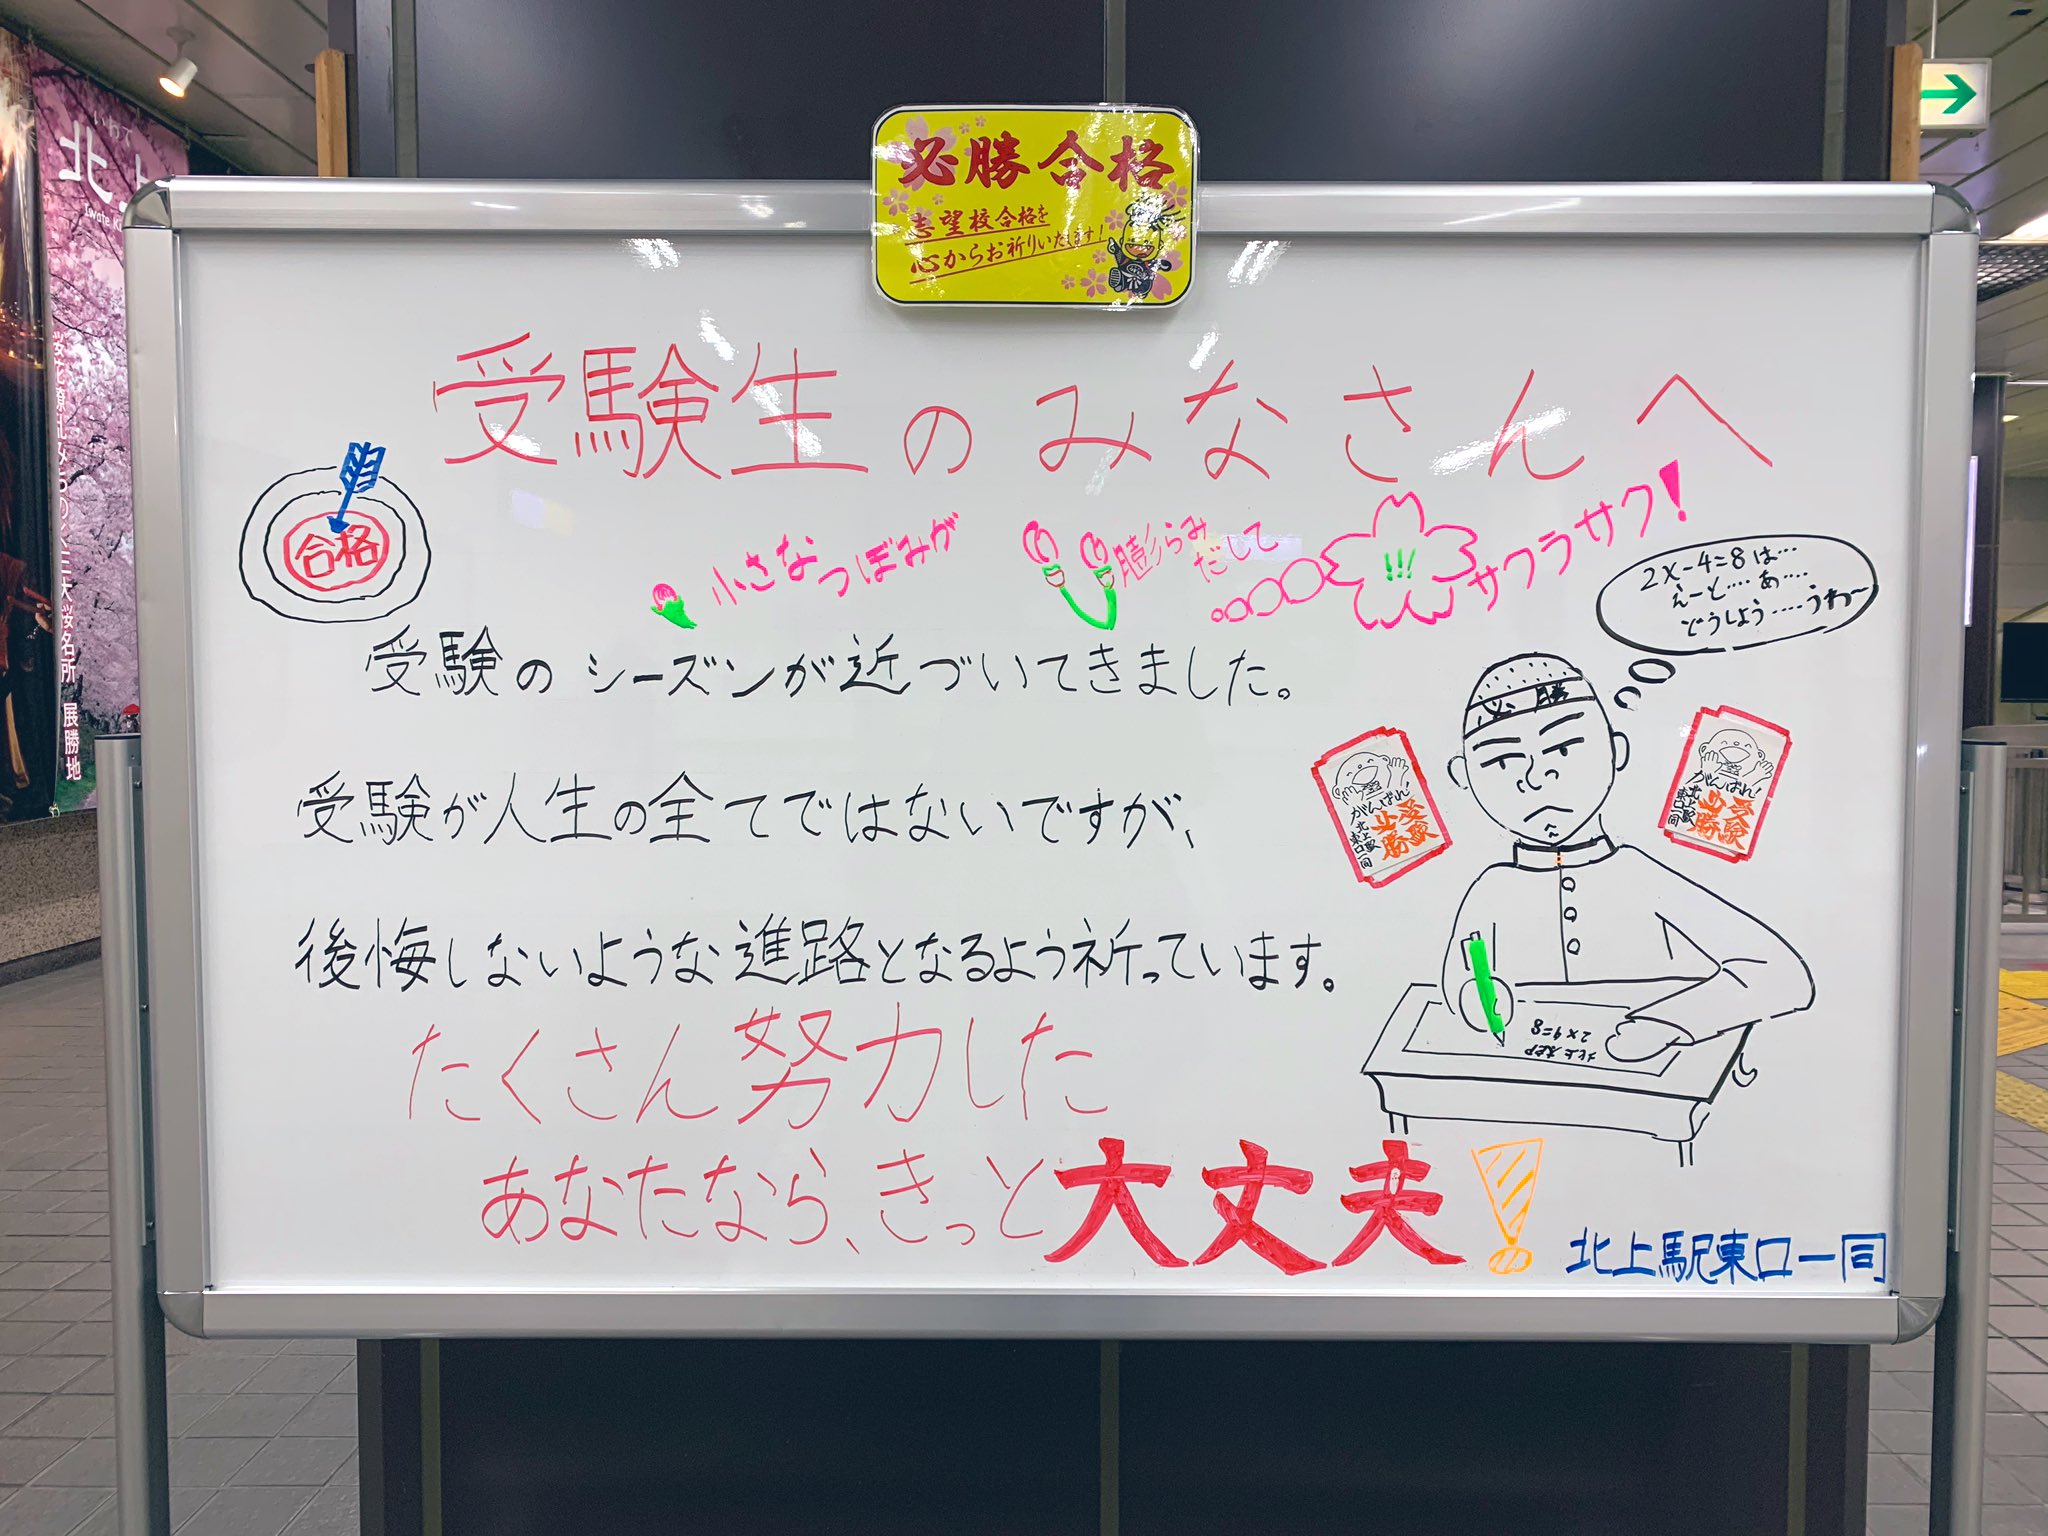 必勝合格
志望校合格を
心からお祈りいたします!
受験生のみなさんへ
合格
小さなつぼみが
膨らみ
だして
!!!
サクラサク!
2x-4=8は…
えーと…. あ….
どうしよう…..うわ~
受験のシーズンが近づいてきました。
必勝
受験が人生の全てではないですが、
がんばれ!
受験
必勝
北上駅
東口一同
がんばれ!
受験
必勝
北上駅
東口一同
後悔しないような進路となるよう祈っています。
2x4=8
たくさん努力した
あなたなら、きっと大丈夫!
北上駅東口一同
いわて
北上
桜花繚乱みちのく三大桜名所 展勝地